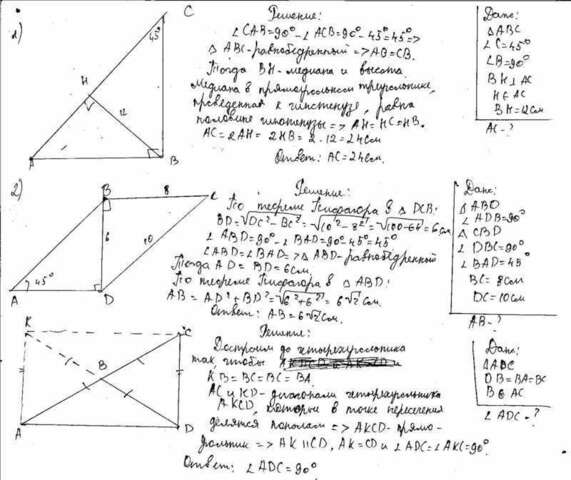 1)
C
45°
H
12
A
B
Решение:
∠CAB=90°-∠ACB=90°-45°=45°=>
△ABC-равнобедренный=>AB=CB.
Тогда BH-медиана и высота
Медиана в прямоугольном треугольнике,
проведенная к гипотенузе, равна
половине гипотенузы=>AH=HC=HB.
AC=2AH=2HB=2·12=24см.
Ответ: AC=24см.
Дано:
△ABC
∠C=45°
∠B=90°
BH⊥AC
H∈AC
BH=12см
AC-?
2)
B
8
C
6
10
45°
A
D
Решение:
По теореме Пифагора в △DCB:
BD=√DC²-BC²=√10²-8²=√100-64=6см
∠ABD=90°-∠BAD=90°-45°=45°
∠ABD=∠BAD=>△ABD-равнобедренной
Тогда AD=BD=6см
По теореме Пифагора в △ABD:
AB=AD²+BD²=√6²+6²=6√2см.
Ответ: AB=6√2см.
Дано:
△ABD
∠ADB=90°
△CBD
∠DBC=90°
∠BAD=45°
BC=8см
DC=10см
AB-?
K
C
B
A
D
Решение:
Достроим до четырехугольника
так чтобы
KB=BC=BC=BA
AC и KD-диагонали четырехугольника
AKCD, которые в точке пересечения
делятся пополам=>AKCD-прямо-
угольник=>AK||CD, AK=CD и ∠ADC=∠AKC=90°
Ответ: ∠ADC=90°
Дано:
△ADC
DB=BA=BC
B∈AC
∠ADC-?